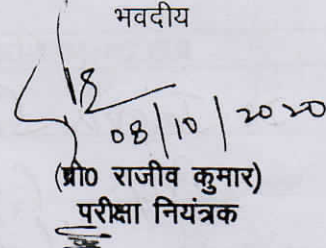 भवदीय
08/10/2020
(प्रो0 राजीव कुमार)
परीक्षा नियंत्रक